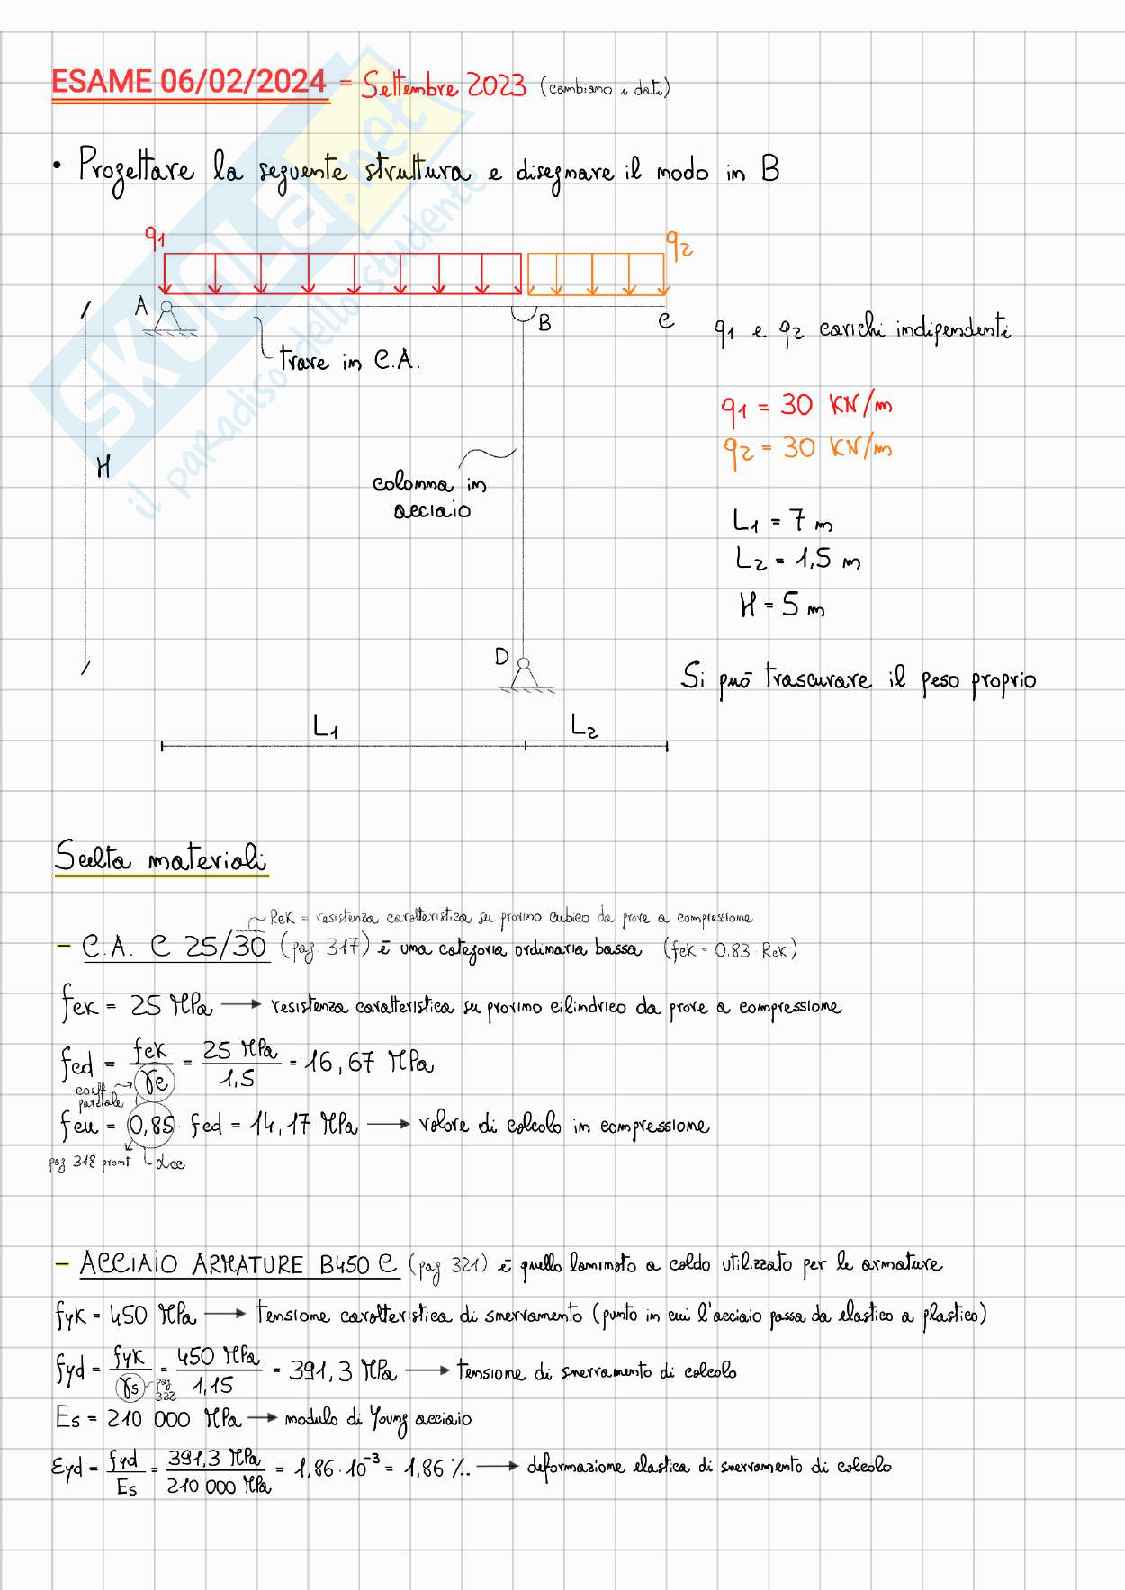 ESAME 06/02/2024 = Settembre 2023 (cambiano i dati)
• Progettare la seguente struttura e disegnare il nodo in B
q1
q2
A
B
C
trave in C.A.
q1 e q2 carichi indipendenti
q1 = 30 KN/m
q2 = 30 KN/m
H
colonna in
acciaio
L1 = 7 m
L2 = 1,5 m
H = 5 m
D
Si può trascurare il peso proprio
L1
L2
Scelta materiali
Rck = resistenza caratteristica su provino cubico da prove a compressione
- C.A. C 25/30 (pag 317) è una categoria ordinaria bassa (fck = 0.83 Rck)
fck = 25 MPa → resistenza caratteristica su provino cilindrico da prove a compressione
fcd = fck/γc = 25 MPa/1,5 = 16,67 MPa
coeff
parziale
fcu = 0,85 · fcd = 14,17 MPa → valore di calcolo in compressione
pag 318 pront αcc
- ACCIAIO ARMATURE B450 C (pag 321) è quello laminato a caldo utilizzato per le armature
fyk = 450 MPa → tensione caratteristica di snervamento (punto in cui l'acciaio passa da elastico a plastico)
fyd = fyk/γs = 450 MPa/1,15 = 391,3 MPa → tensione di snervamento di calcolo
pag
322
Es = 210 000 MPa → modulo di Young acciaio
εyd = fyd/Es = 391,3 MPa/210 000 MPa = 1,86·10⁻³ = 1,86 ‰ → deformazione elastica di snervamento di calcolo
SKUOLA.net
il paradiso dello studente